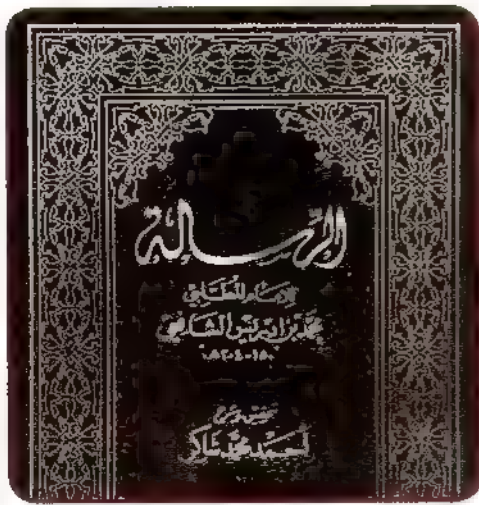 الرسالة
للإمام المطلبي
محمد بن إدريس الشافعي
١٥٠-٢٠٤هـ
تحقيق وشرح
أحمد محمد شاكر